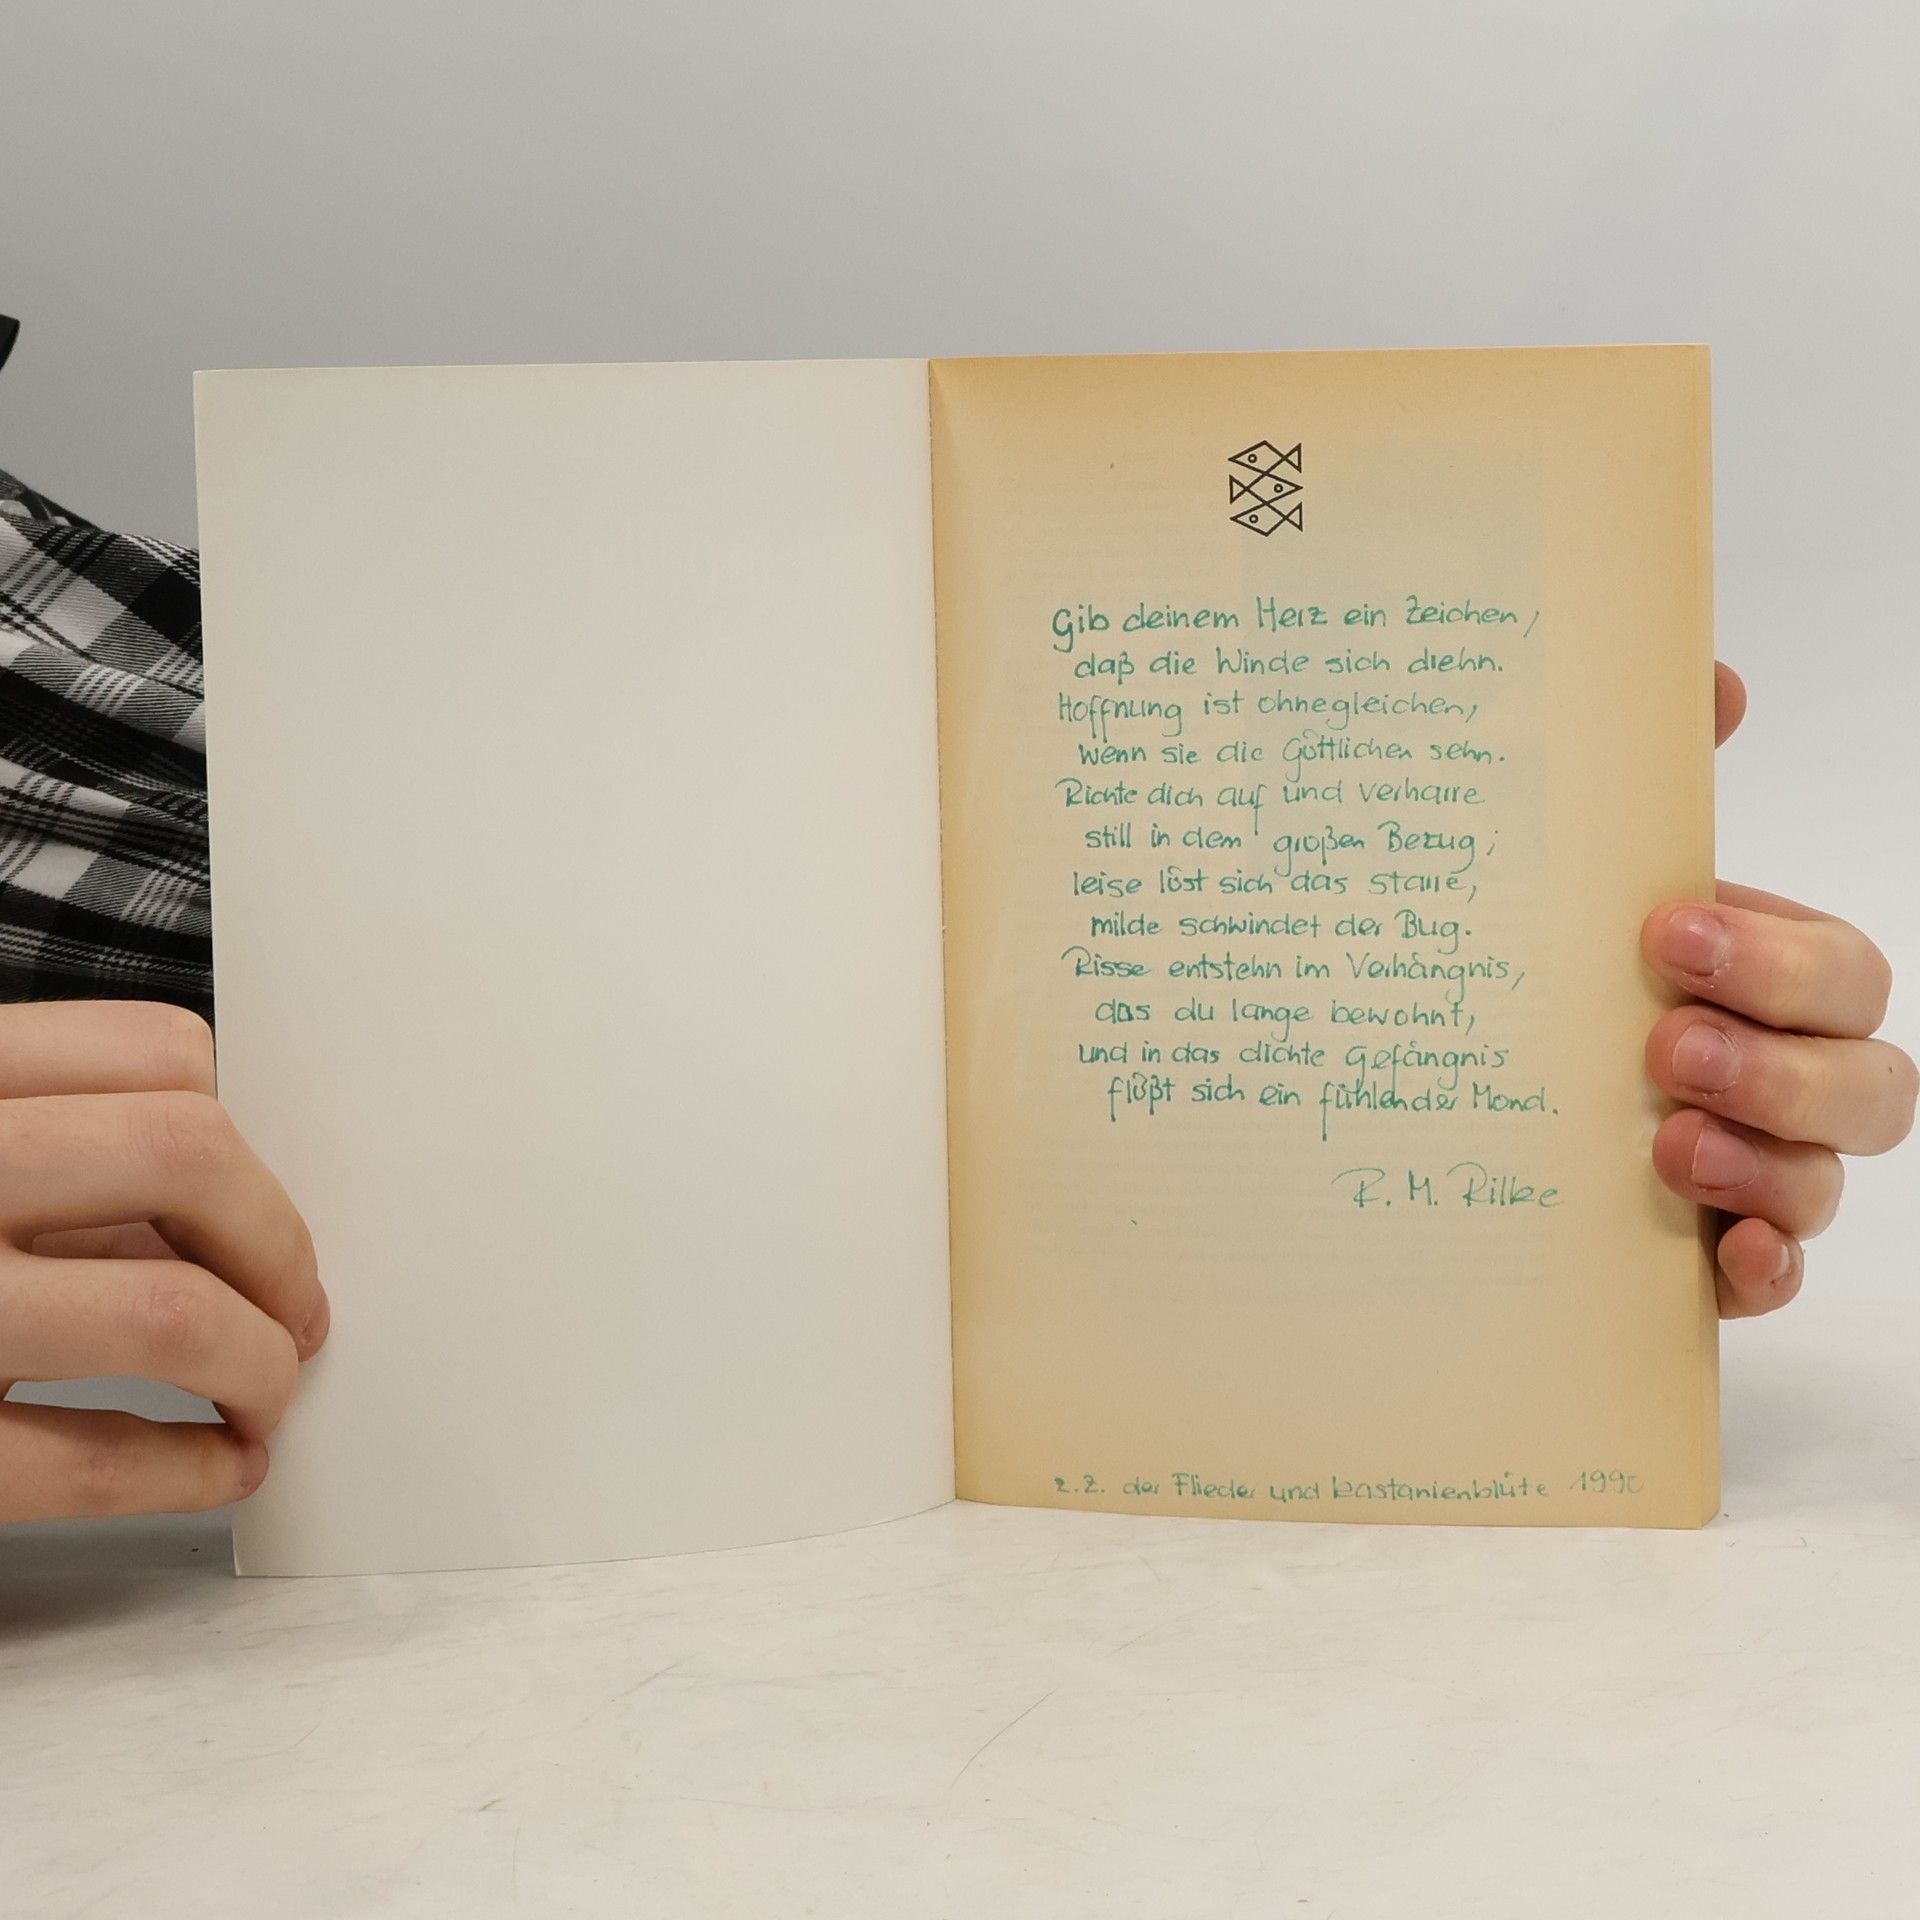 Gib deinem Herz ein Zeichen,
daß die Winde sich drehn.
Hoffnung ist ohnegleichen,
wenn sie die Göttlichen sehn.
Richte dich auf und verharre
still in dem großen Bezug;
leise löst sich das Starre,
milde schwindet der Bug.
Risse entstehn im Verhängnis,
das du lange bewohnt,
und in das dichte Gefängnis
flößt sich ein fühlender Mond.
R. M. Rilke
z.Z. der Flieder und Kastanienblüte 1990